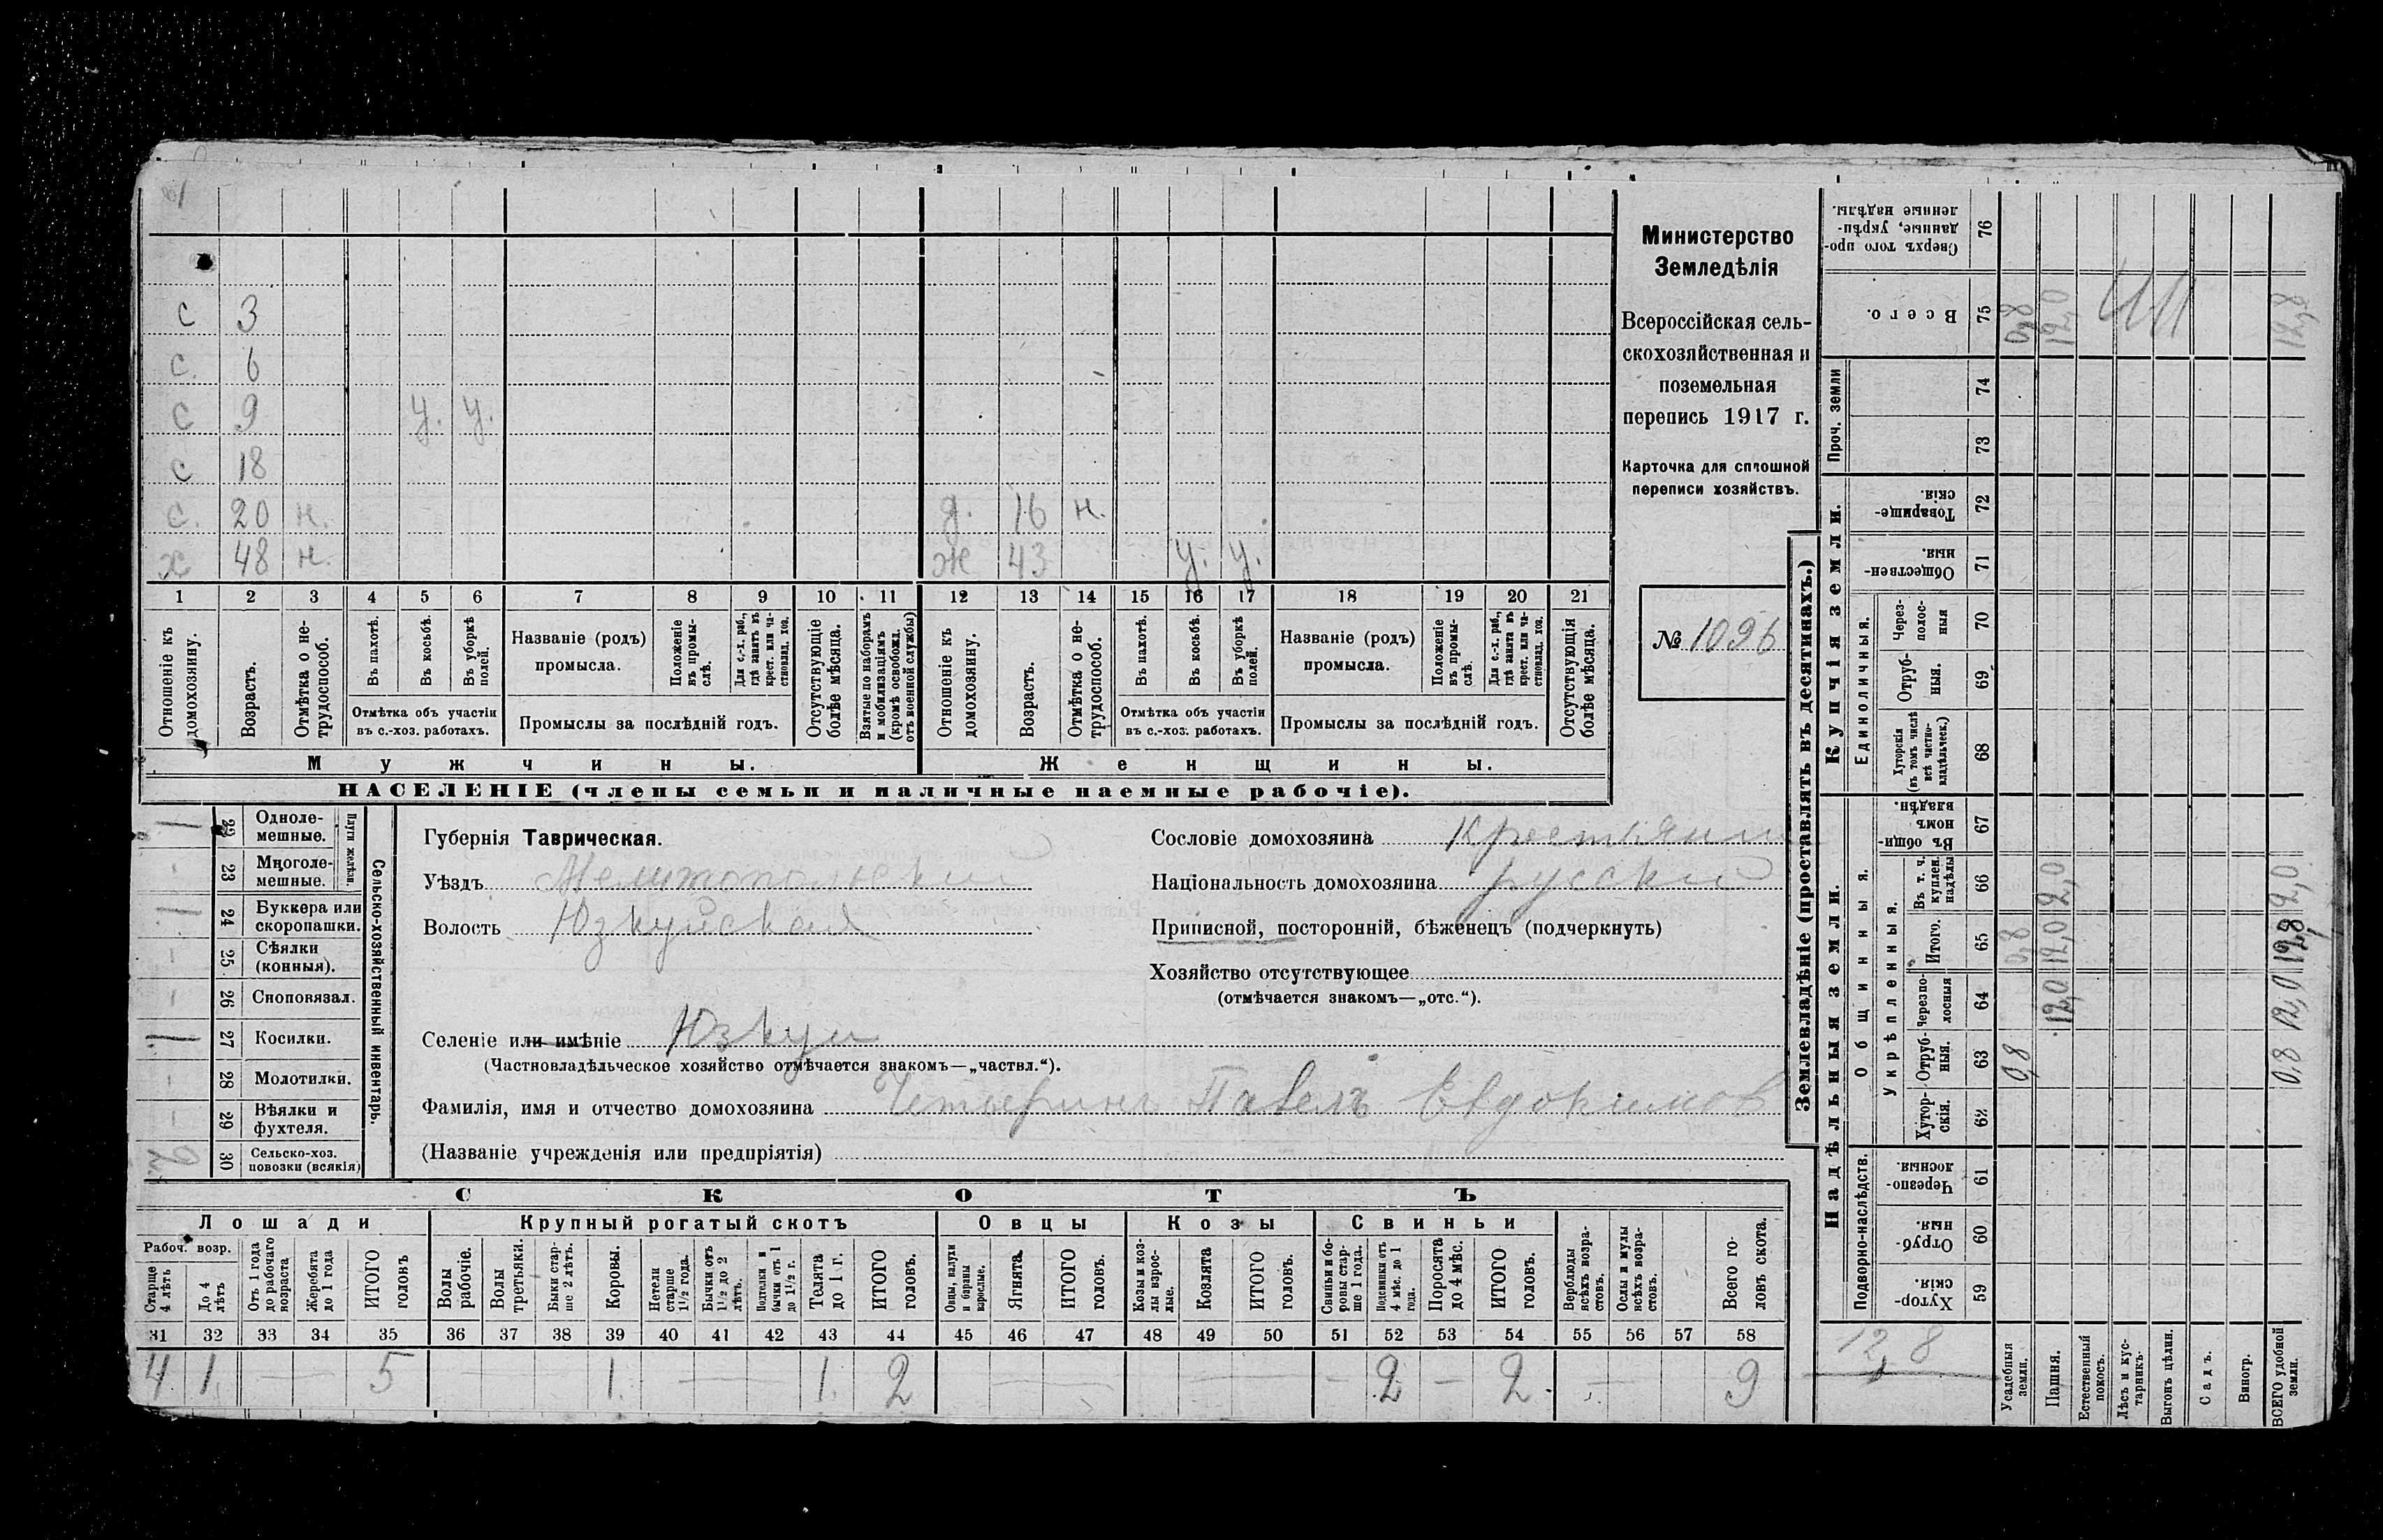 с 3
с. 6
с 9 у. у.
с 18
с. 20 н. д. 16 н.
х 48 н. ж 43 у. у.
1 2 3 4 5 6 7 8 9 10 11 12 13 14 15 16 17 18 19 20 21
Отношеніе къ домохозяину.
Возрастъ.
Отмѣтка о нетрудоспособ.
Въ пахотѣ.
Въ косьбѣ.
Въ уборкѣ полей.
Отмѣтка объ участіи
въ с.-хоз. работахъ.
Названіе (родъ)
промысла.
Положеніе въ промыслѣ.
Для с.-х. раб., гдѣ занятъ въ крест. или частновлад. хоз.
Промыслы за послѣдній годъ.
Отсутствующіе болѣе мѣсяца.
Взятые по наборамъ и мобилизаціямъ (кромѣ освобожд. отъ военной службы)
Отношеніе къ домохозяину.
Возрастъ.
Отмѣтка о нетрудоспособ.
Въ пахотѣ.
Въ косьбѣ.
Въ уборкѣ полей.
Отмѣтка объ участіи
въ с.-хоз. работахъ.
Названіе (родъ)
промысла.
Положеніе въ промыслѣ.
Для с.-х. раб., гдѣ занята въ крест. или частновлад. хоз.
Промыслы за послѣдній годъ.
Отсутствующія болѣе мѣсяца.
Мужчины. Женщины.
НАСЕЛЕНІЕ (члены семьи и наличные наемные рабочіе).
Министерство
Земледѣлія
Всероссійская сель-
скохозяйственная и
поземельная
перепись 1917 г.
Карточка для сплошной
переписи хозяйствъ.
№ 1096
Сельско-хозяйственный инвентарь.
Плуги желѣзн.
1 22 Одноле-
мешные.
- 23 Многоле-
мешные.
1 24 Буккера или
скоропашки.
- 25 Сѣялки
(конныя).
- 26 Сноповязал.
1 27 Косилки.
- 28 Молотилки.
- 29 Вѣялки и
фухтеля.
30 Сельско-хоз.
повозки (всякія)
Губернія Таврическая.
Уѣздъ Мелитопольскій
Волость Юзкуйская
Селеніе или имѣніе Юзкуи
(Частновладѣльческое хозяйство отмѣчается знакомъ—„частвл.“).
Фамилія, имя и отчество домохозяина Четверинъ Павелъ Евдокимов
(Названіе учрежденія или предпріятія)
Сословіе домохозяина Крестьянин
Національность домохозяина русскій
Приписной, посторонній, бѣженецъ (подчеркнуть)
Хозяйство отсутствующее
(отмѣчается знакомъ—„отс.“).
СКОТЪ
Лошади Крупный рогатый скотъ Овцы Козы Свиньи
Рабоч. возр.
Старще 4 лѣтъ
До 4 лѣтъ
Отъ 1 года до рабочаго возраста
Жеребята до 1 года
ИТОГО головъ
Волы рабочіе.
Волы третьяки.
Быки старше 2 лѣтъ.
Коровы.
Нетели старше 1½ года.
Бычки отъ 1½ до 2 лѣтъ.
Подтелки и бычки отъ 1 до 1½ г.
Телята до 1 г.
ИТОГО головъ.
Овцы, валухи и бараны взрослые.
Ягнята.
ИТОГО головъ.
Козы и козлы взрослые.
Козлята
ИТОГО головъ.
Свиньи и боровы старше 1 года.
Подсвинки отъ 4 мѣс. до 1 года.
Поросята до 4 мѣс.
ИТОГО головъ.
Верблюды всѣхъ возрастовъ.
Ослы и мулы всѣхъ возрастовъ.
Всего головъ скота.
31 32 33 34 35 36 37 38 39 40 41 42 43 44 45 46 47 48 49 50 51 52 53 54 55 56 57 58
4 1. — 5 - - - 1. — 1. 2 — — - 2 - 2. - 9
Землевладѣніе (проставлять въ десятинахъ.)
Надѣльныя земли. Купчія земли.
Проч. земли
Подворно-наслѣдств.
Общинныя.
Укрѣпленныя.
Единоличныя.
Хуторскія. 59
Отрубныя. 60
Черезполосныя. 61
Хуторскія. 62
Отрубныя. 63
Черезполосныя 64
Итого. 65
Въ т. ч. куплен. надѣлы 66
Въ общинномъ владѣн. 67
Хуторскія (въ томъ числѣ всѣ частновладѣльческ.) 68
Отрубныя. 69
Черезполосныя 70
Общественныя. 71
Товарищескія. 72
73
74
Всего. 75
Сверхъ того проданные, укрѣпленные надѣлы. 76
12,8
Усадебныя земли. 0,8 0,8 0,8
Пашня. 12,0 12,0 2,0 12,0
Естественный покосъ.
Лѣсъ и кустарникъ
Выгонъ цѣлин.
Садъ.
Виногр.
ВСЕГО удобной земли. 0,8 12,0 12,8 2,0 12,8